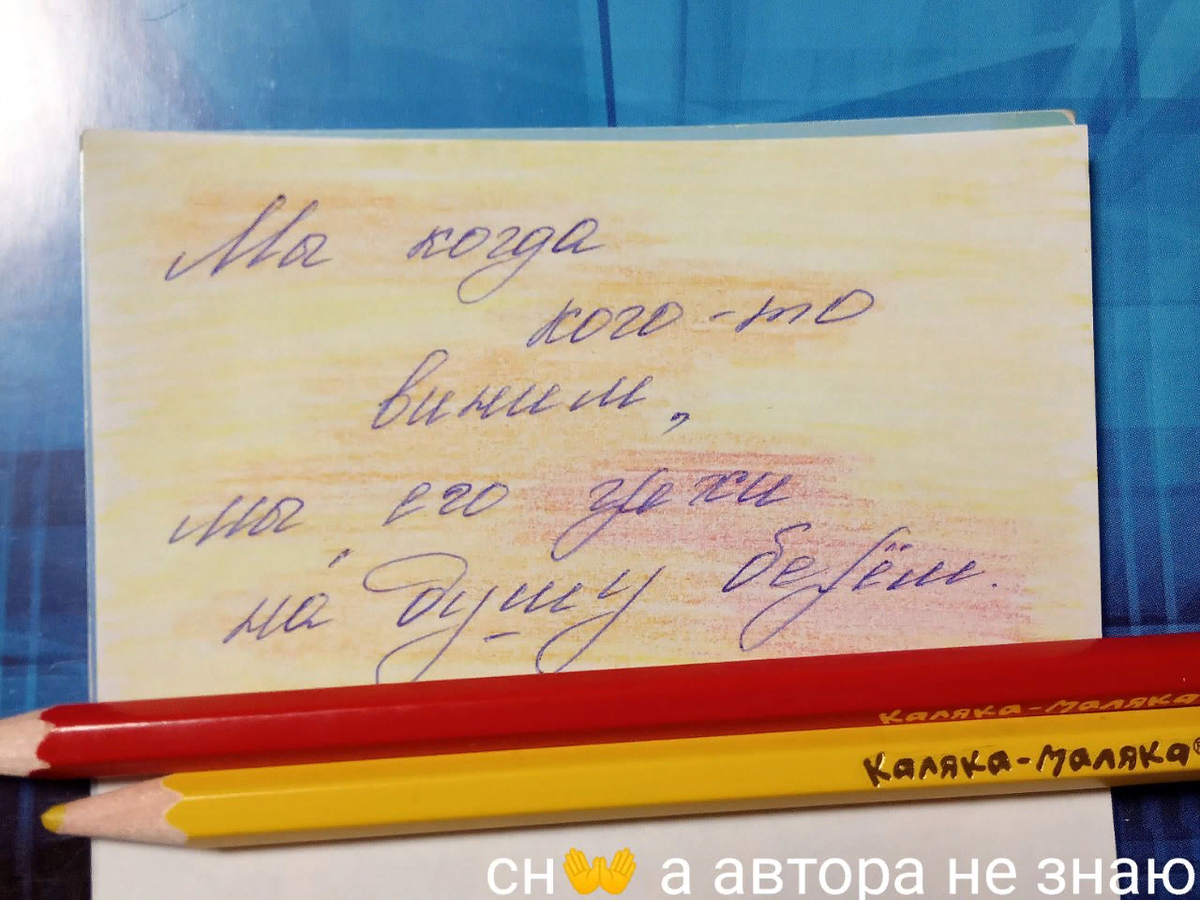 Мы когда
кого-то
виним,
мы его грехи
на́ душу берём.
каляка-маляка
каляка-маляка®
сн👐 а автора не знаю